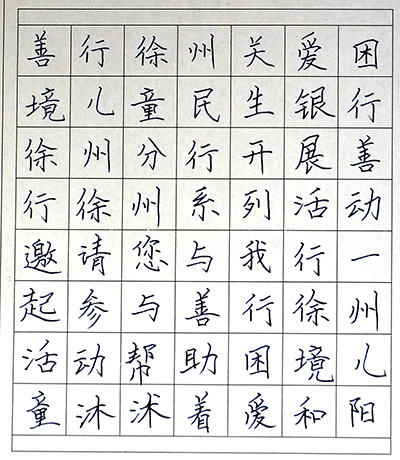 善行徐州关爱困
境儿童民生银行
徐州分行开展善
行徐州系列活动
邀请您与我行一
起参与善行徐州
活动帮助困境儿
童沐沭着爱和阳